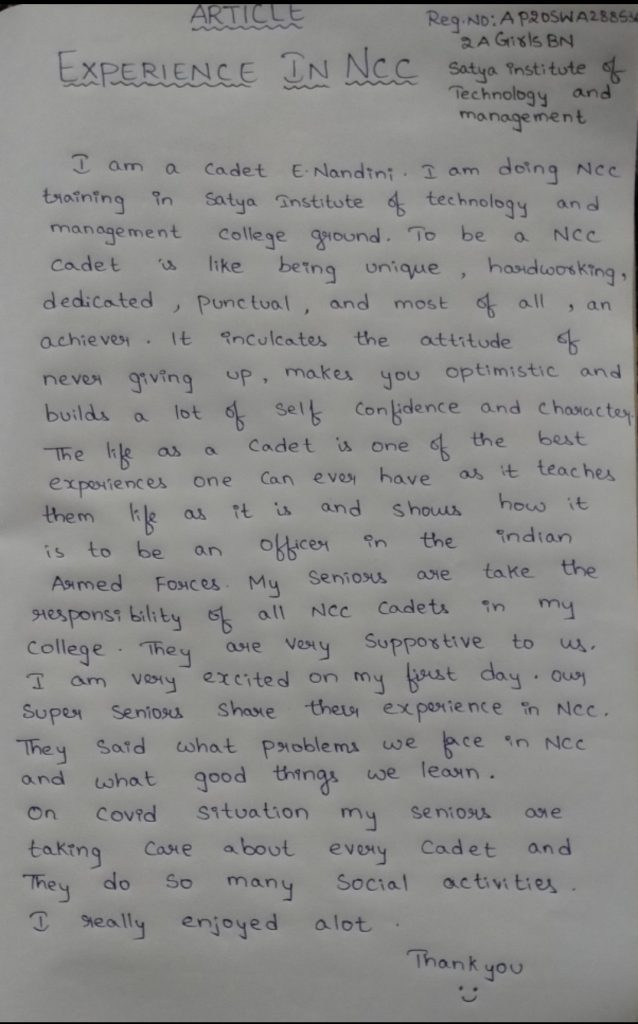 ARTICLE
Reg.NO: AP20SWA28853
2A Girls BN
EXPERIENCE IN NCC
Satya institute of
Technology and
management
I am a cadet E.Nandini. I am doing NCC
training in Satya Institute of technology and
management college ground. To be a NCC
cadet is like being unique, hardworking,
dedicated, punctual, and most of all, an
achiever. It inculcates the attitude of
never giving up, makes you optimistic and
builds a lot of self confidence and character.
The life as a cadet is one of the best
experiences one can ever have as it teaches
them life as it is and shows how it
is to be an officer in the indian
Armed Forces. My seniors are take the
responsibility of all NCC cadets in my
college. They are very supportive to us.
I am very excited on my first day. our
super seniors share their experience in NCC.
They said what problems we face in NCC
and what good things we learn.
On covid situation my seniors are
taking care about every cadet and
They do so many social activities.
I really enjoyed alot.
Thank you